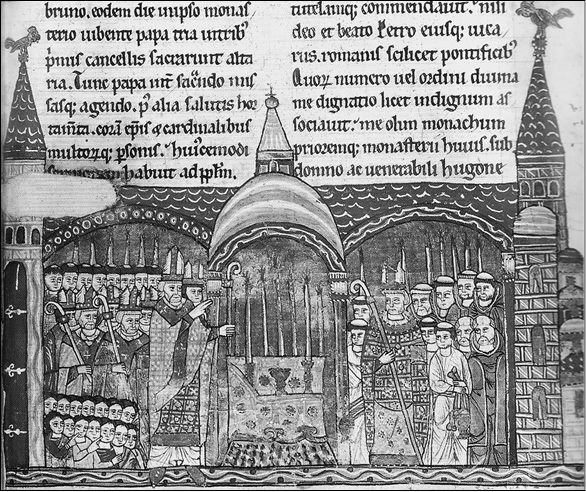 bruno. eodem die in ipso monas
terio iubente papa tria in trib᾽
pͥmis cancellis sacrarunt alta
ria. Tunc papa int̾ sacͣndo mis
sasq; agendo. p᾽ alia salutis hor
tam̄ta. corā ep̄is & cardinalibus
multorq; ꝑsonis. huiscemodi
habuit ad pp̄lm.
tutelamq; commendauit. nisi
deo et beato petro eiusq; uica
riis. romanis scilicet pontificib᾽
Quoꝝ numero uel ordini diuina
me dignatio licet indignum as
sociauit. me olim monachum
prioremq; monasterii huius. sub
domno ac uenerabili hugone